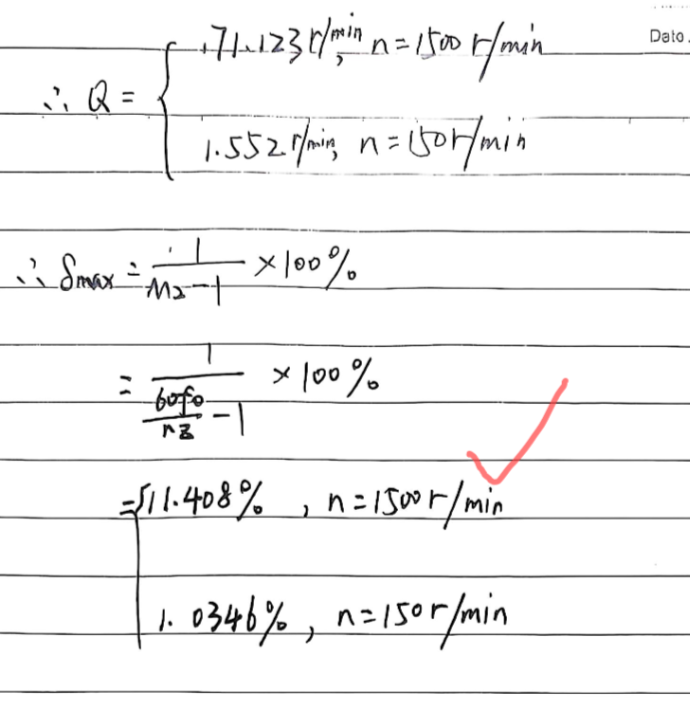 Dato.
∴ Q = { 171.123 r/min, n=1500 r/min
1.552 r/min, n=150 r/min
∴ δmax = 1/(M2-1) ×100%
= 1/(60f0/nz - 1) ×100%
= { 11.408%, n=1500 r/min
1.0346%, n=150 r/min